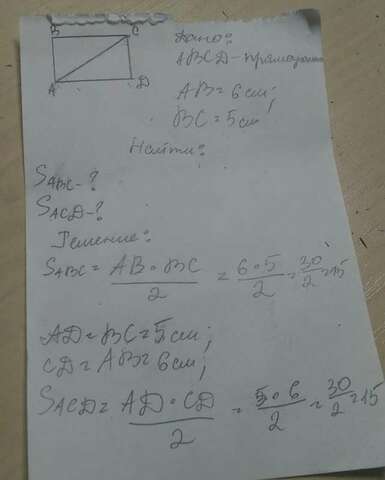 B C
A D
Дано:
ABCD - прямоугол
AB = 6 см;
BC = 5 см;
Найти:
S ABC - ?
S ACD - ?
Решение:
S ABC = AB · BC / 2 = 6 · 5 / 2 = 30 / 2 = 15
AD = BC = 5 см;
CD = AB = 6 см;
S ACD = AD · CD / 2 = 5 · 6 / 2 = 30 / 2 = 15